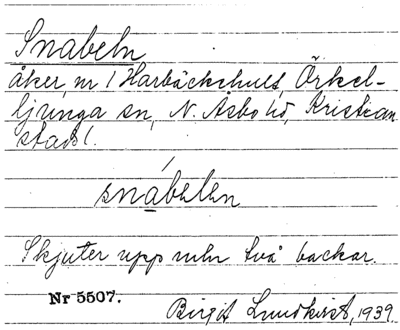 Snabeln
åker nr 1 Harbäckshult, Örkel-
ljunga sn, N. Åsbo hd, Kristian
stads l.
snabelen
Skjuter upp mln två backar.
Nr 5507.
Birgit Lundkvist, 1939.